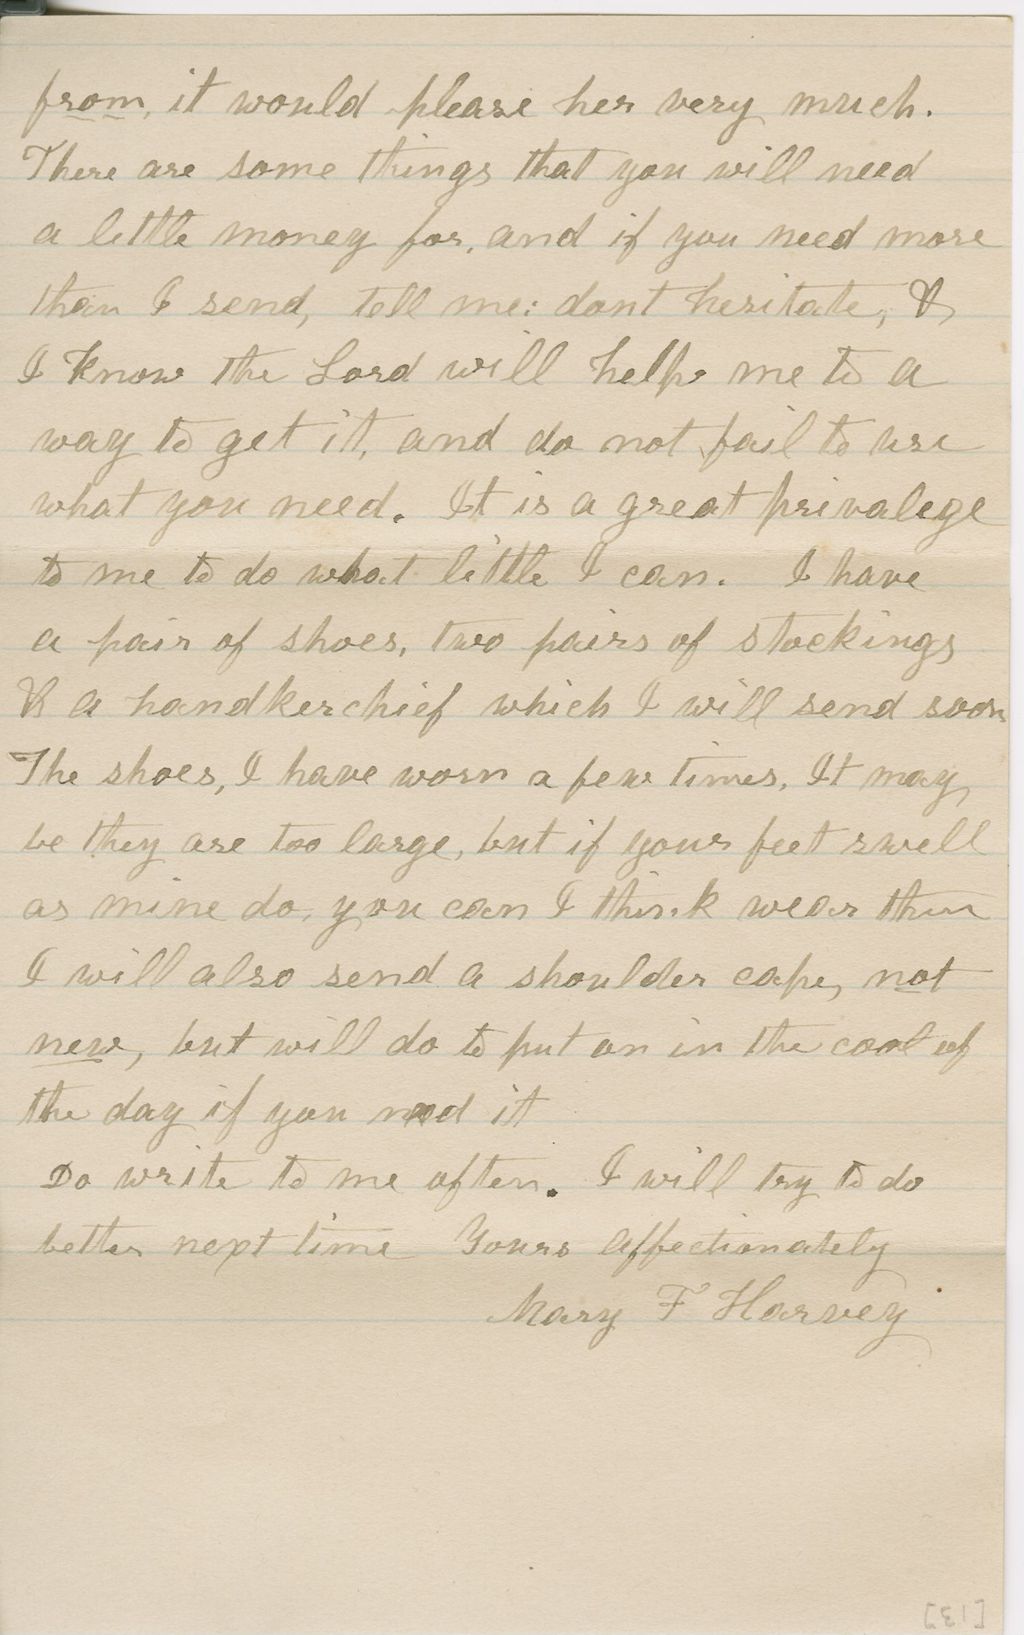 from, it would please her very much.
There are some things that you will need
a little money for, and if you need more
than I send, tell me: dont hesitate, &
I know the Lord will help me to a
way to get it, and do not fail to use
what you need. It is a great privalege
to me to do what little I can. I have
a pair of shoes, two pairs of stockings
& a handkerchief which I will send soon
The shoes, I have worn a few times. It may
be they are too large, but if your feet swell
as mine do, you can I think wear them
I will also send a shoulder cape, not
new, but will do to put on in the cool of
the day if you need it
Do write to me often. I will try to do
better next time Yours affectionately
Mary F Harvey
[13]